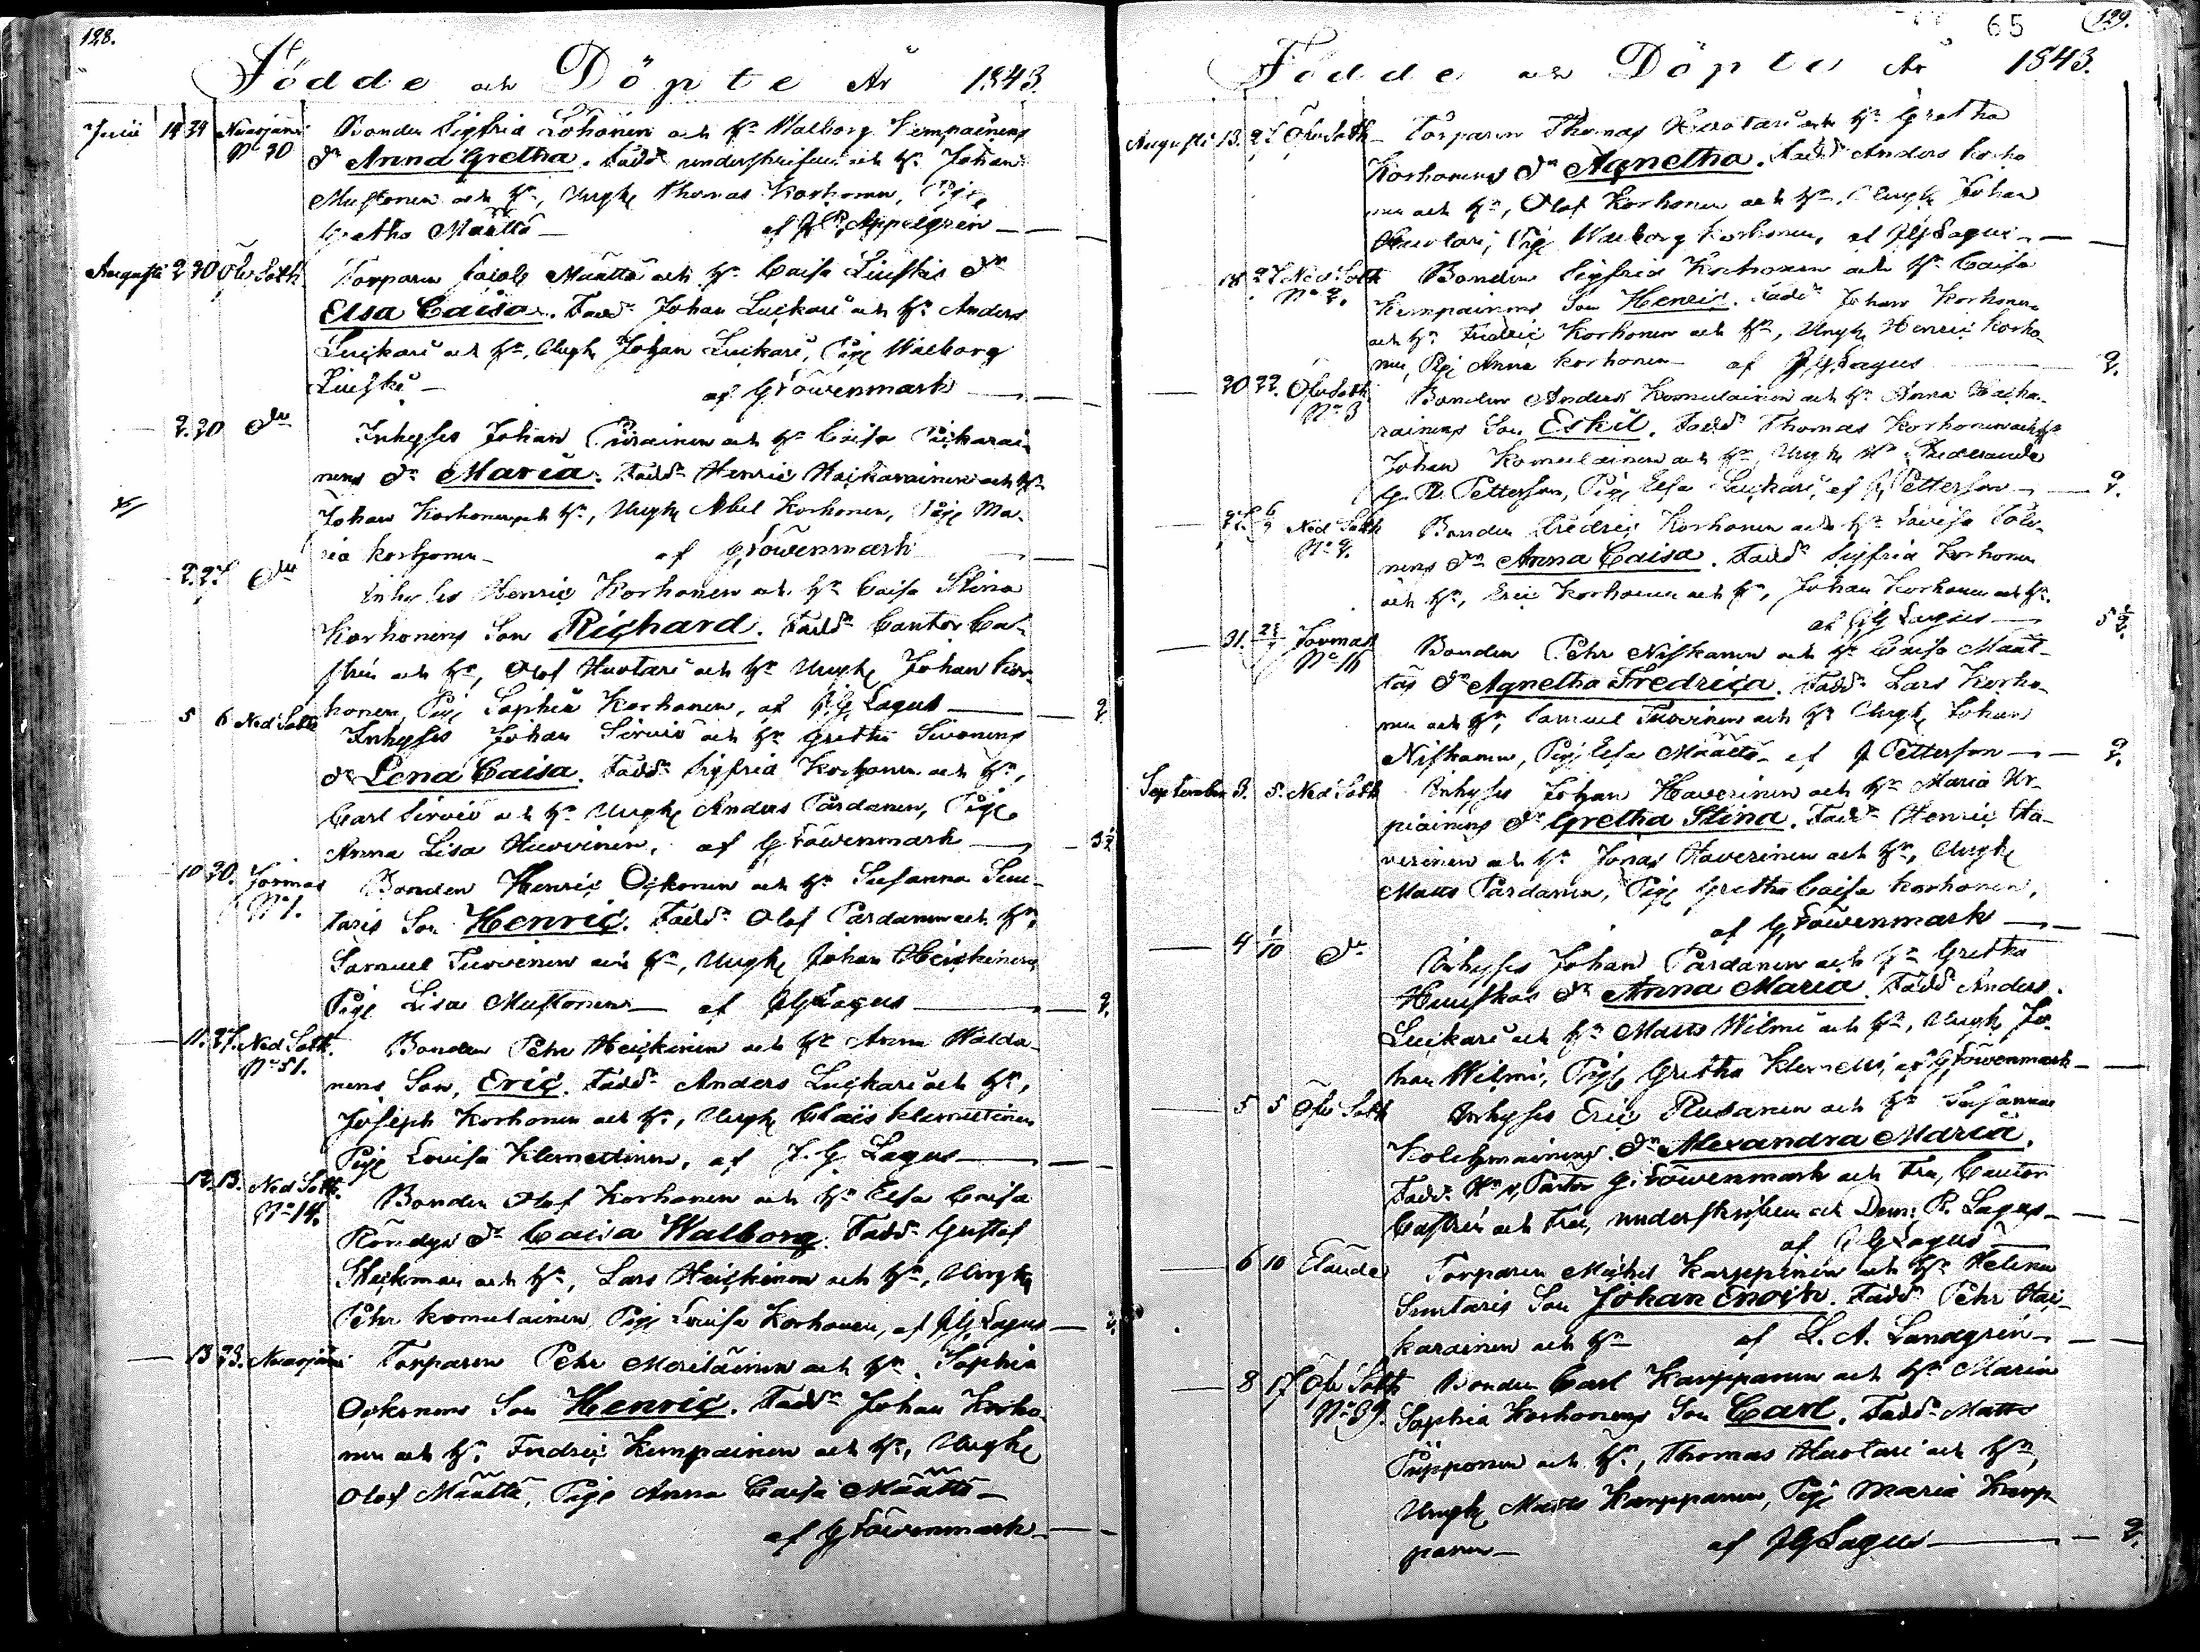 128.
Födde och Döpte År 1843.
Julii 14 Nuasjärvi Bonden Sigfrid Lohonen och H:u Walborg Kempainens
N:o 20 D:r Anna Gretha. Fadd: underskrifven och H:u Johan
Mustonen och H:u, Yngk Thomas Korhonen, Pig
Gretha Määttä — af Appelgrén —
Augusti 2 20 Öfv Sotk Torparen Jacob Määttä och H:u Caisa Liuskis D:r
Elsa Caisa. Fadd: Johan Luckari och H:u Anders
Luckari och H:u, Yngk Johan Luckari, Pig Walborg
Liuski — af G Löwenmark —
2. 20 D:o Inhyses Johan Piirainen och H:u Caisa
nens D:r Maria. Fadd: Henric Haikarainen och H:u
Johan Korhonen och H:u, Yngk Abel Korhonen, Pig Ma-
ria Korhonen — af G Löwenmark —
2. 27 D:o Inhyses Henric Korhonen och H:u Caisa Stina
Korhonens Son Richard. Fadd: Cantor Ca-
strén och H:u, Olof Huotari och H:u Yngk Johan Kor-
honen, Pig Sophia Korhonen, af J.G. Lagus — 2.
5 6 Ned Sotk Inhyses Johan Sirviö och H:u Gretha Sivonens
D:r Lena Caisa. Fadd: Sigfrid Korhonen och H:u,
Carl Sirviö och H:u Yngk Anders Pardanen, Pig
Anna Lisa Huovinen, af G Löwenmark —
10 20. Jormas Bonden Henric Oikonen och H:u Susanna Smu-
N:o 1. taris Son Henric. Fadd: Olof Pardanen och H:u,
Samuel Tuovinen och H:u, Yngk Johan Heickinen,
Pig Lisa Mustonen — af J G Lagus — 2.
11. 27. Ned Sotk. Bonden Pehr Heickinen och H:u Anna Walda-
N:o 51. nens Son, Eric. Fadd: Anders Luckari och H:u,
Joseph Korhonen och H:u, Yngk Claës Klemettinen
Pig Lovisa Klemettinen, af J. G. Lagus —
12. 13. Ned Sotk. Bonden Olof Korhonen och H:u Elsa Caisa
N:o 14. Röndys D:r Caisa Walborg. Fadd: Gustaf
och H:u, Lars Heickinen och H:u, Yngk
Pehr Komulainen, Pig Lovisa Korhonen, af J G Lagus — 2.
13 23. Nuasjärvi Torparen Pehr Meriläinen och H:u Sophia
Oikonens Son Henric. Fadd: Johan Korho-
nen och H:u, Fredric Kempainen och H:u, Yngk
Olof Määttä, Pig Anna Caisa Määttä —
af G Löwenmark —
65 129.
Födde och Döpte År 1843.
Augusti 13. 27 Öfv Sotk Torparen Thomas Huotari och H:u Gretha
Korhonens D:r Agnetha. Fadd: Anders Korho
nen och H:u, Olof Korhonen och H:u, Yngk Johan
Huotari, Pig Walborg Korhonen, af J G Lagus —
18 27 Ned Sotk Bonden Sigfrid Korhonen och H:u Caisa
N:o 2. Kempainens Son Henric. Fadd: Johan Korhonen
och H:u Fredric Korhonen och H:u, Yngk Henric Korho-
nen, Pig Anna Korhonen — af J G Lagus — 2.
20 22. Öfv Sotk Bonden Anders Komulainen och H:u Anna Haika-
N:o 3 rainens Son Eskil. Fadd: Thomas Korhonen och H:u
Johan Komulainen och H:u, Yngk H:r Studerande
G. R. Petterson, Pig Elsa Luckari, af J Petterson — 2.
27. Ned Sotk Bonden Fredric Korhonen och H:u Lovisa Tolo-
N:o 9. nens D:r Anna Caisa. Fadd: Sigfrid Korhonen
och H:u, Eric Korhonen och H:u, Johan Korhonen och H:u.
af J G Lagus —
31. Jormas Bonden Pehr Niskanen och H:u Caisa Määt-
N:o 16 täs D:r Agnetha Fredrica. Fadd: Lars Korho-
nen och H:u, Samuel Tuovinen och H:u Yngk Johan
Niskanen, Pig Elsa Määttä — af J Petterson — 2.
September 3. 5. Ned Sotk Inhyses Johan Haverinen och H:u Maria Ur-
piainens D:r Gretha Stina. Fadd: Henric Ha-
verinen och H:u Jonas Haverinen och H:u, Yngk
Matts Pardanen, Pig Gretha Caisa Korhonen,
af G Löwenmark —
4 1/10 D:o Inhyses Johan Pardanen och H:u Gretha
Huuskos D:r Anna Maria. Fadd: Anders
Luckari och H:u Matts Wilmi och H:u, Yngk Jo-
han Wilmi, Pig Gretha Klemetti, af G Löwenmark —
5 5 Öfv Sotk Inhyses Eric Rusanen och H:u Susanna
Kolehmainens D:r Alexandra Maria.
Fadd: H:r v. Pastor G. Löwenmark och Fru, Cantor
Castrén och Fru, underskrifven och Dem: R. Lagus —
af J G Lagus —
6 10 Torparen Michel Karppinen och H:u Helena
Smutaris Son Johan Enoch. Fadd: Pehr Hai-
karainen och H:u — af L. A. Landgrén —
8 17 Öfv Sotk Bonden Carl Karppanen och H:u Maria
N:o 39. Sophia Korhonens Son Carl. Fadd: Matts
Piipponen och H:u, Thomas Huotari och H:u,
Yngk Matts Karppanen, Pig Maria Karp-
panen — af J G Lagus — 2.